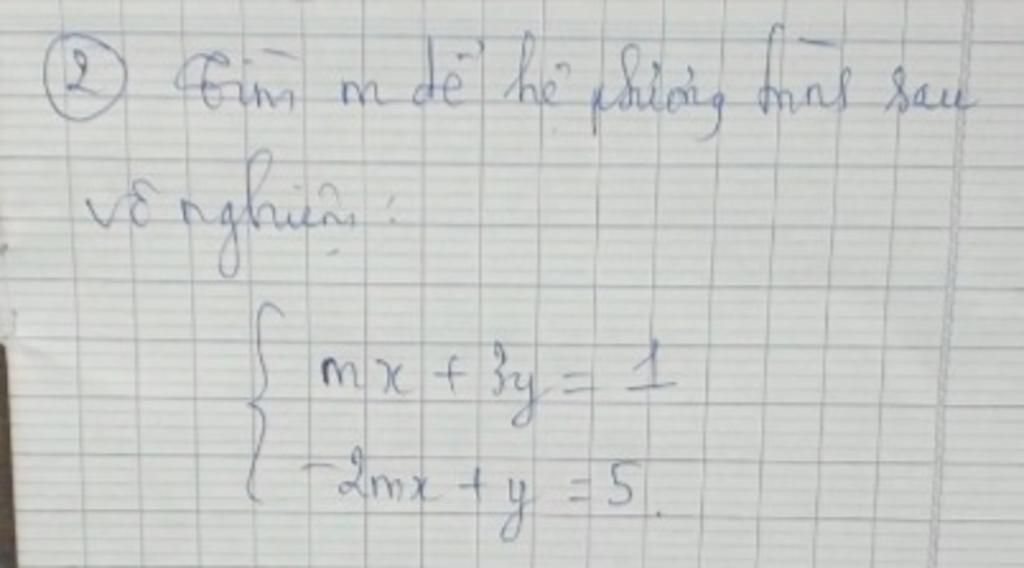 ② Tìm m để hệ phương trình sau
vô nghiệm :
mx + 3y = 1
-2mx + y = 5.